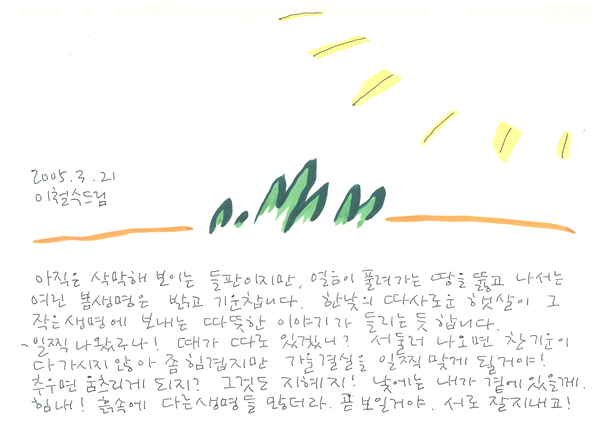 2005.3.21
이철수드림
아직은 삭막해 보이는 들판이지만, 얼음이 풀려가는 땅을 뚫고 나서는
여린 봄생명은 밝고 기운찹니다. 한낮의 따사로운 햇살이 그
작은생명에 보내는 따뜻한 이야기가 들리는듯 합니다.
~일찍 나왔구나! 때가 따로 있겠니? 서둘러 나오면 찬기운이
다 가시지 않아 좀 힘겹지만 가을결실을 일찍 맞게 될거야!
추우면 움츠리게 되지? 그것도 지혜지! 낮에는 내가 곁에 있을게.
힘내! 흙속에 다른생명들 많더라. 곧 보일거야. 서로 잘지내고!